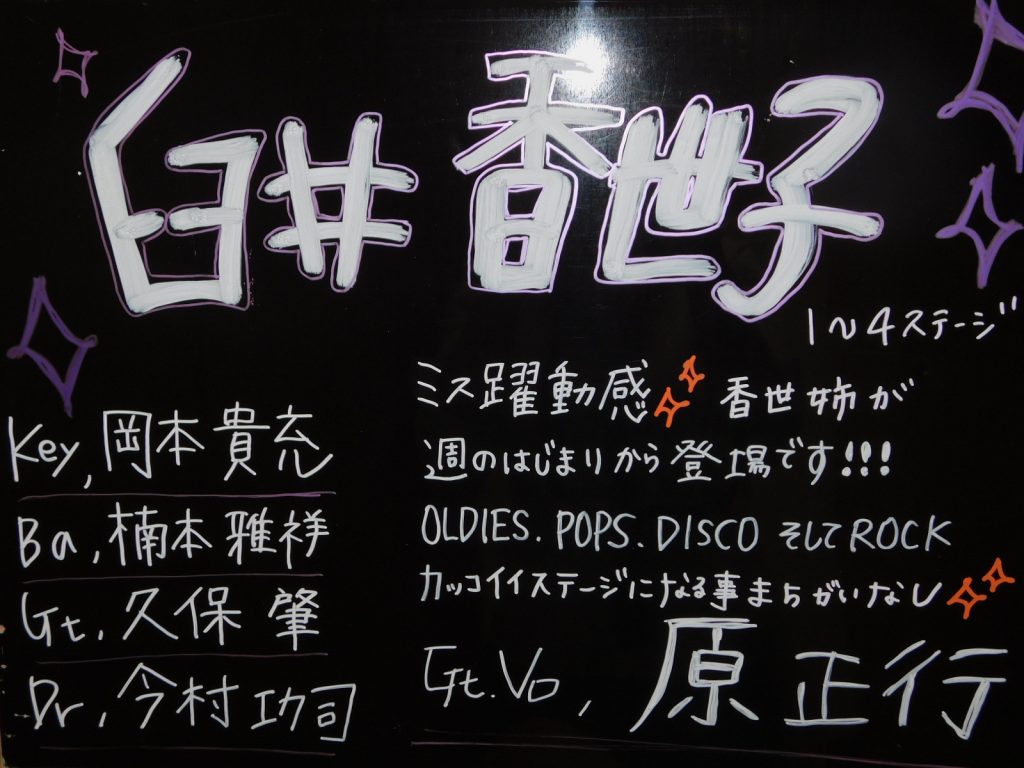 臼井 香世子
1~4ステージ
Key, 岡本 貴充
Ba, 楠本 雅祥
Gt, 久保 肇
Dr, 今村 功司
ミス躍動感 香世姉が
週のはじまりから登場です!!!
OLDIES. POPS. DISCO そしてROCK
カッコイイステージになる事まちがいなし
Gt.Vo, 原 正行